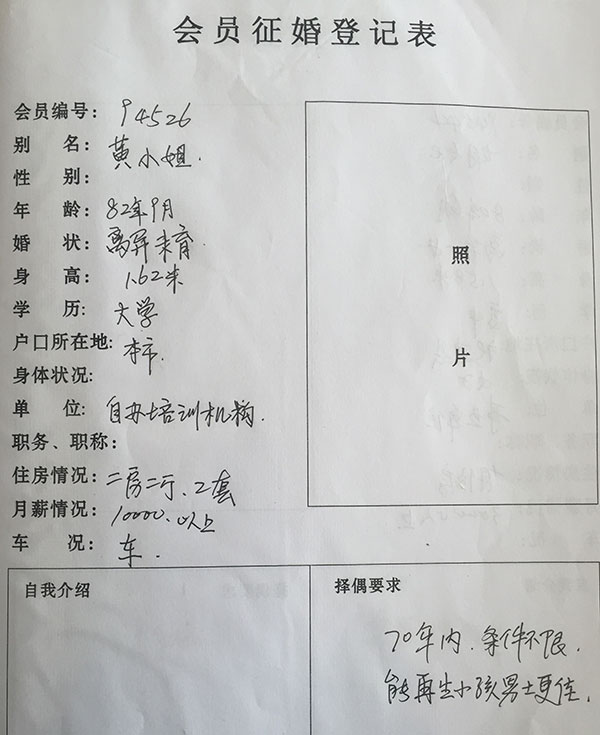 会员征婚登记表
会员编号: 94526
别 名: 黄小姐.
性 别:
年 龄: 82年9月
婚 状: 离异未育
身 高: 1.62米
学 历: 大学
户口所在地: 本市.
身体状况:
单 位: 自办培训机构.
职务、职称:
住房情况: 二房二厅、2套
月薪情况: 10000.以上
车 况: 车.
照
片
自我介绍
择偶要求
70年内.条件不限.
能再生小孩男士更佳.